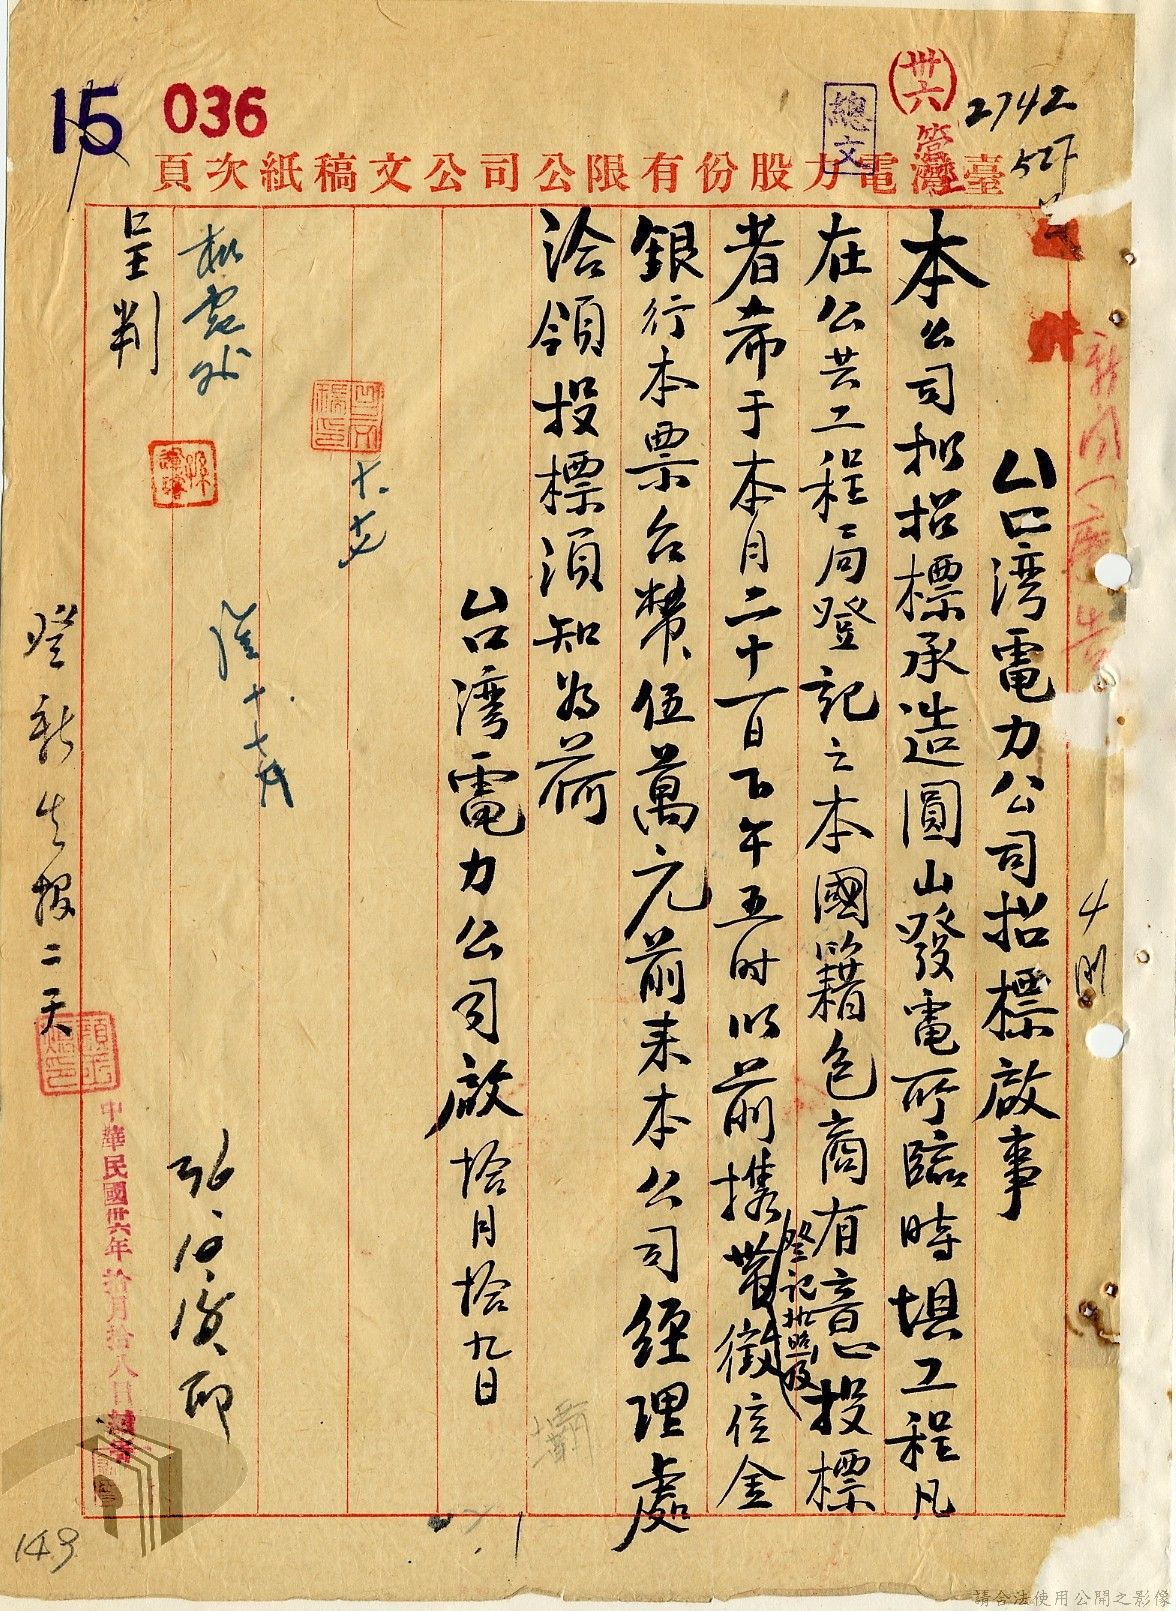 15
036
卅六
總文
2742
臺灣電力股份有限公司公文稿紙次頁
台灣電力公司招標啟事
本公司拟招標承造圓山發電所臨時堤工程凡
在公共工程局登記之本國籍包商有意投標
者希于本月二十一日下午五时以前携帶登記执照及徵信金
銀行本票台幣伍萬元前来本公司經理處
洽領投標須知为荷
台湾電力公司啟 拾月拾九日
十.十七
呈判
登新生报二天
中華民國卅六年拾月拾八日
143
請合法使用公開之影像